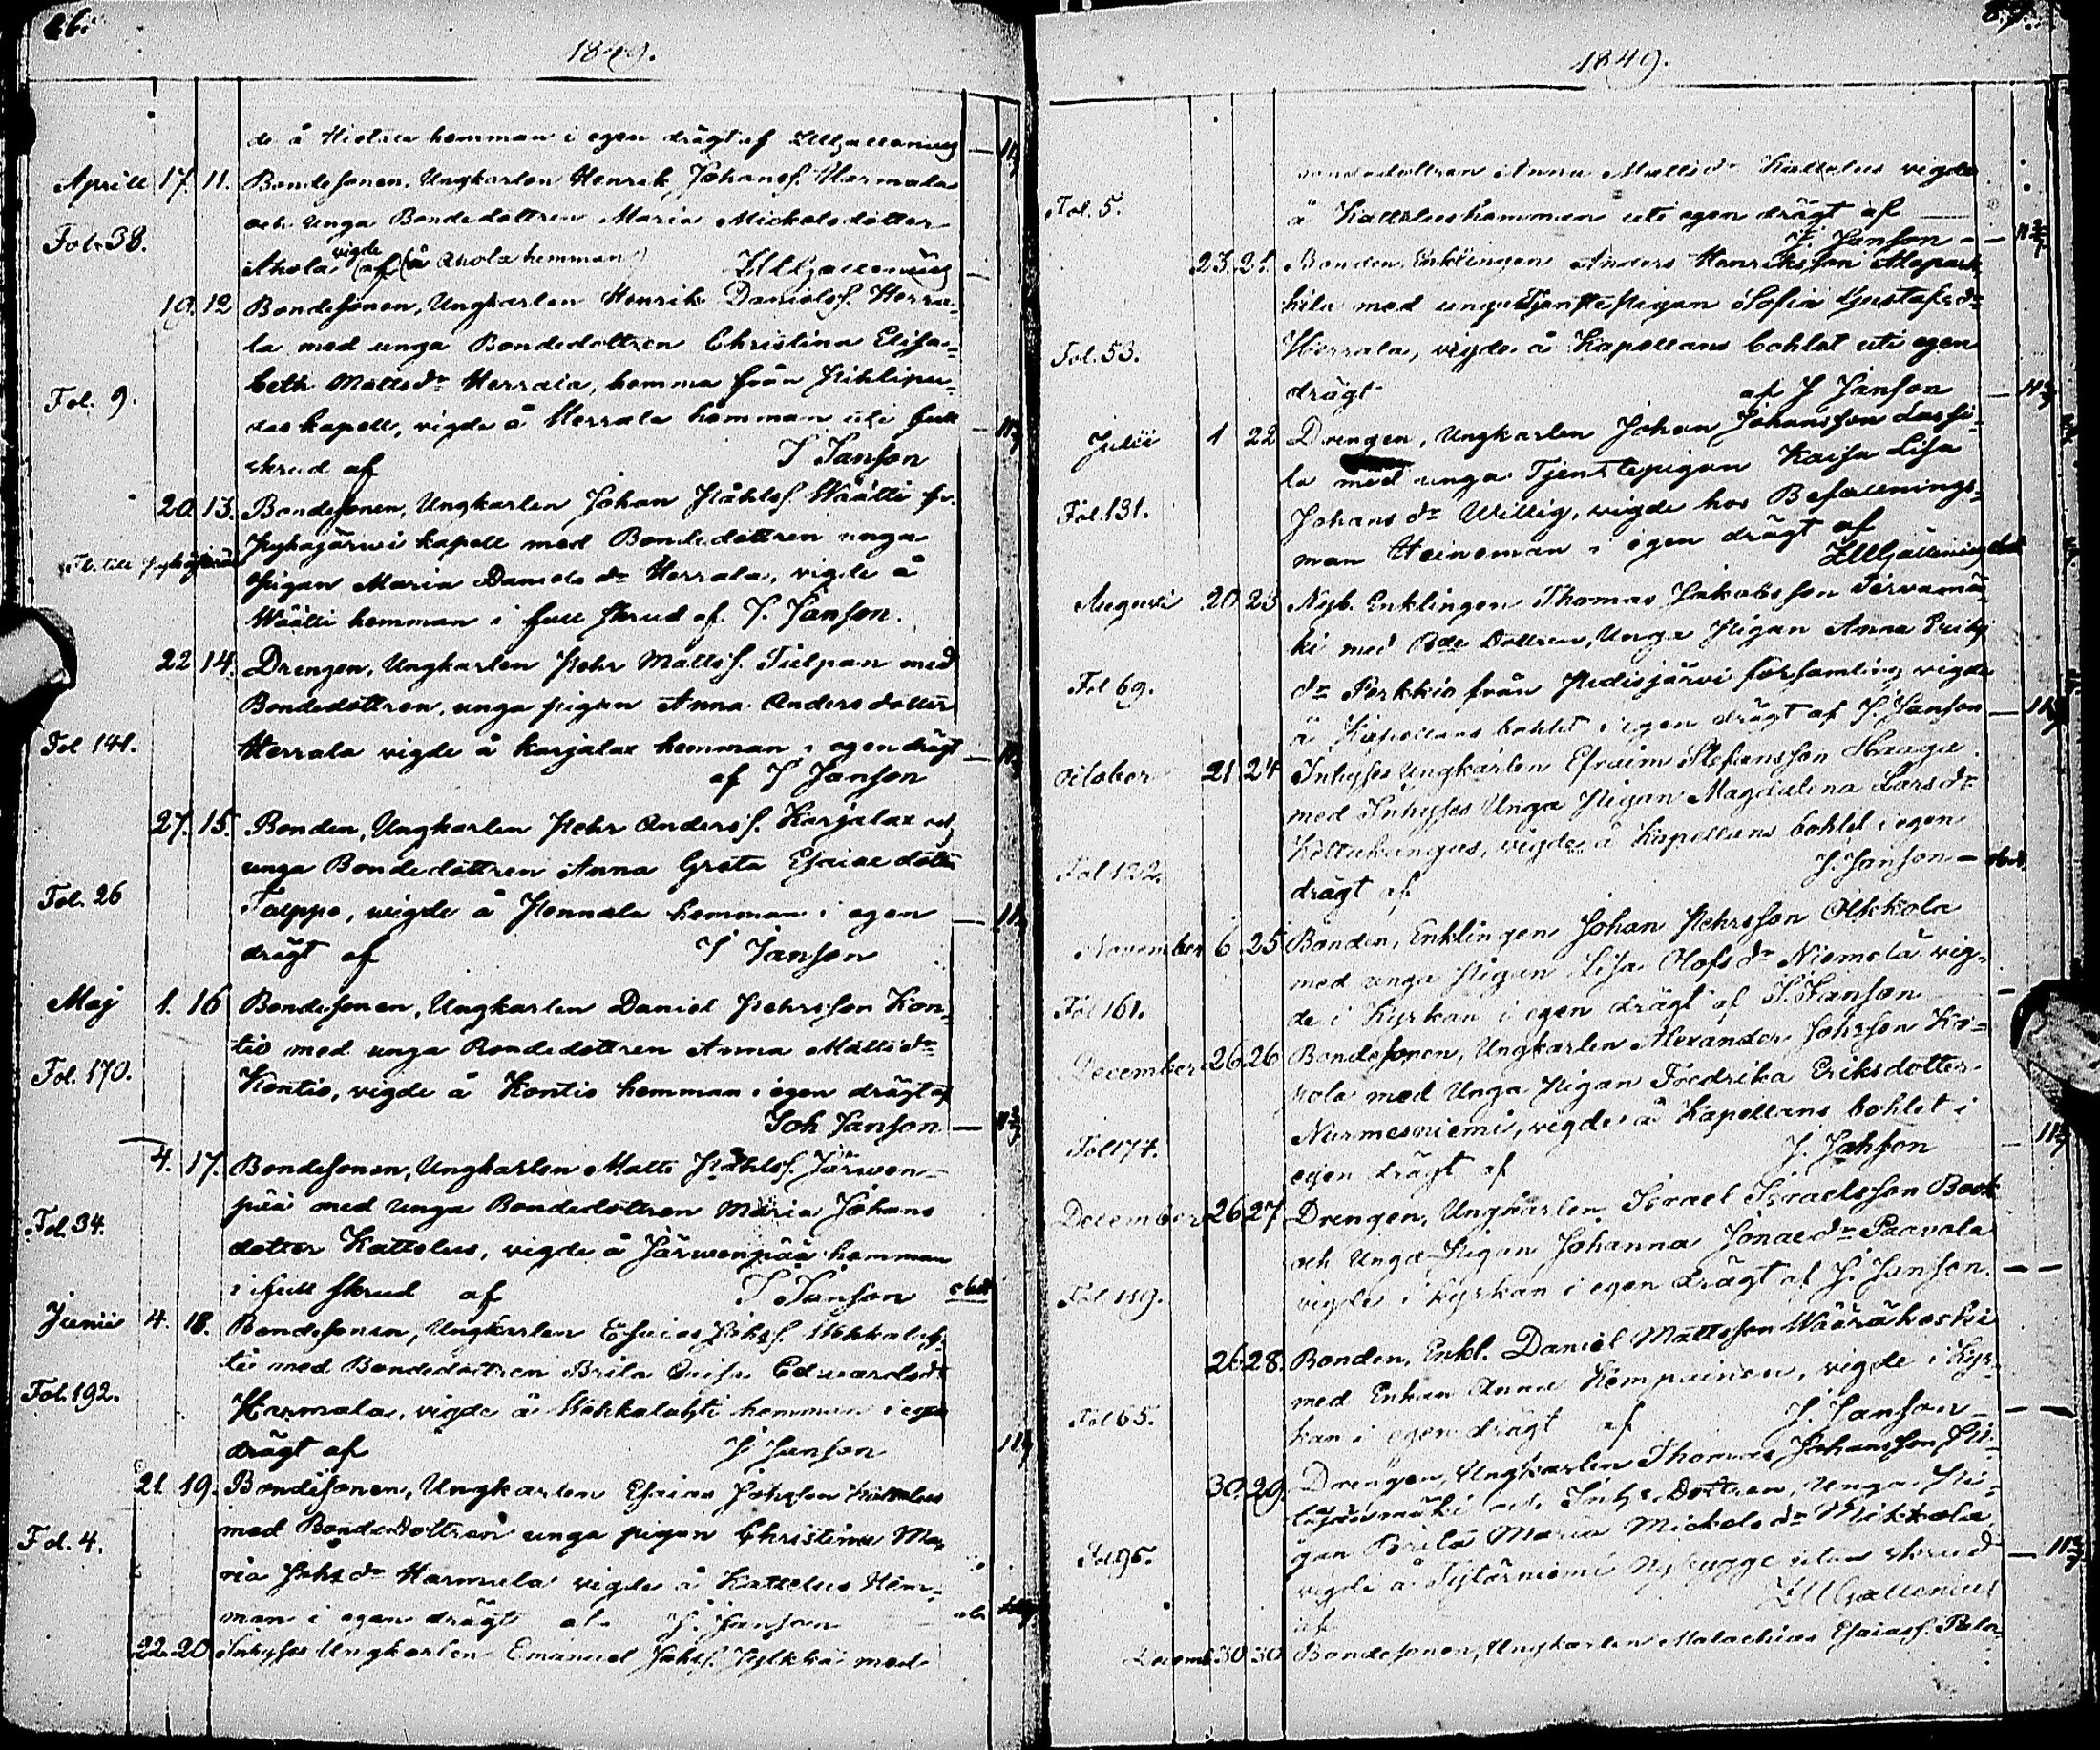 66.
1849.
de å Hietala hemman i egen drägt af
Aprill 17. 11. Bondesonen, Ungkarlen Henrik Johansf. Harmala
och unga Bondedottren Maria Mickelsdotter
Fol. 38.
Ahola vigde af (å Ahola hemman)
19. 12 Bondesonen, Ungkarlen Henrik Danielsf. Herra-
la med unga Bondedottren Christina Elisa-
beth Mattsdr Herrala, hemma från
Fol. 9.
das kapell, vigde å Herrala hemman uti full
skrud af J Janson
20. 13. Bondesonen, Ungkarlen Johan Påhlsf. Wäätti fr.
Pyhäjärvi kapell med Bondedottren unga
pigan Maria Daniels dr Herrala, vigde å
Wäätti hemman i full skrud af J. Janson.
22 14. Drengen, Ungkarlen Pehr Mattsf. Tulpan med
Bondedottren, unga pigan Anna Andersdotter
Fol 141.
Herrala vigde å Karjalax hemman i egen drägt
af J Janson
27. 15. Bonden, Ungkarlen Pehr Andersf. Karjalax och
unga Bondedottren Anna Greta Esaiae dotter
Fol. 26
vigde å Pennala hemman i egen
drägt af J Janson
Maj 1. 16 Bondesonen, Ungkarlen Daniel Pehrsson Kon-
tio med unga Bondedottren Anna Mattsdr
Fol. 170.
Kontio, vigde å Kontio hemman i egen drägt af
Joh Janson
4. 17. Bondesonen, Ungkarlen Matts Påhlsf. Järwen-
pää med unga Bondedottren Maria Johans
Fol. 34.
dotter Kattelus, vigde å Järwenpää hemman
i full skrud af J Janson
Junii 4. 18. Bondesonen, Ungkarlen Esaias Johsf.
med Bondedottren Brita Edwardsdr
Fol. 192.
Harmala, vigde å hemman i egen
drägt af J Janson
21. 19. Bondesonen, Ungkarlen Esaias Johsson Kattelus
med Bondedottren unga pigan Christina Ma-
Fol. 4.
ria Johsdr Harmala vigde å Kattelus Hem-
man i egen drägt af J. Janson
22. 20 Inhyses Ungkarlen Emanuel Johsf. med
67.
1849.
Bondedottren Anna Mattsdr Kattelus vigde
Fol. 5.
å Kattelus hemman uti egen drägt af
J. Janson
23. 21. Bonden, Enklingen Anders Henriksson
med unga Tjenstepigan Sofia Gustafsdr
Fol. 53.
Herrala, vigde å Kapellans bohlet uti egen
drägt af J Janson
Julii 1 22 Drengen, Ungkarlen Johan Johansson Lassi-
la med unga Tjenstepigan Kaisa Lisa
Fol. 131.
Johans dr Willig, vigde hos Befallnings-
man Heineman i egen drägt af
Augusti 20 23 Nyb. Enklingen Thomas Jakobsson Tervamä-
ki med Bde Dottren, Unga Pigan Anna
Fol 69.
dr Perkkiö från Pudisjärvi församling vigde
å Kapellans bohlet i egen drägt af J. Janson
October 21 24 Inhyses Ungkarlen Efraim Stefansson Haaga
med Inhyses Unga Pigan Magdalena Larsdr
Fol 122.
vigde å Kapellans bohlet i egen
drägt af J. Janson
November 6. 25 Bonden, Enklingen Johan Pehrsson Olkkola
med unga Pigan Lisa Olofsdr Niemelä vig-
Fol 161.
de i Kyrkan i egen drägt af J. Janson
December 26 26 Bondesonen, Ungkarlen Alexander Johsson Ko-
med Unga Pigan Fredrika Eriksdotter
Fol 174.
Nurmesniemi, vigde å Kapellans bohlet i
egen drägt af J. Janson
December 26 27 Drengen, Ungkarlen Israel Israelsson Book
och Unga Pigan Johanna Jonaedr Paavola
Fol. 119.
vigde i Kyrkan i egen drägt af J. Janson.
26. 28. Bonden, Enkl. Daniel Mattsson Wääräkoski
med Enkan Anna Kemppainen, vigde i Kyr-
Fol 65.
kan i egen drägt af J. Janson
30. 29. Drengen, Ungkarlen Thomas Johansson
och Inhs Dottren, Unga Pi-
Fol 95.
gan Brita Maria Mickelsdr Mikkola
vigde å Nybygge utan skrud
af
Decemb. 30 30 Bondesonen, Ungkarlen Malachias Esaiasf.